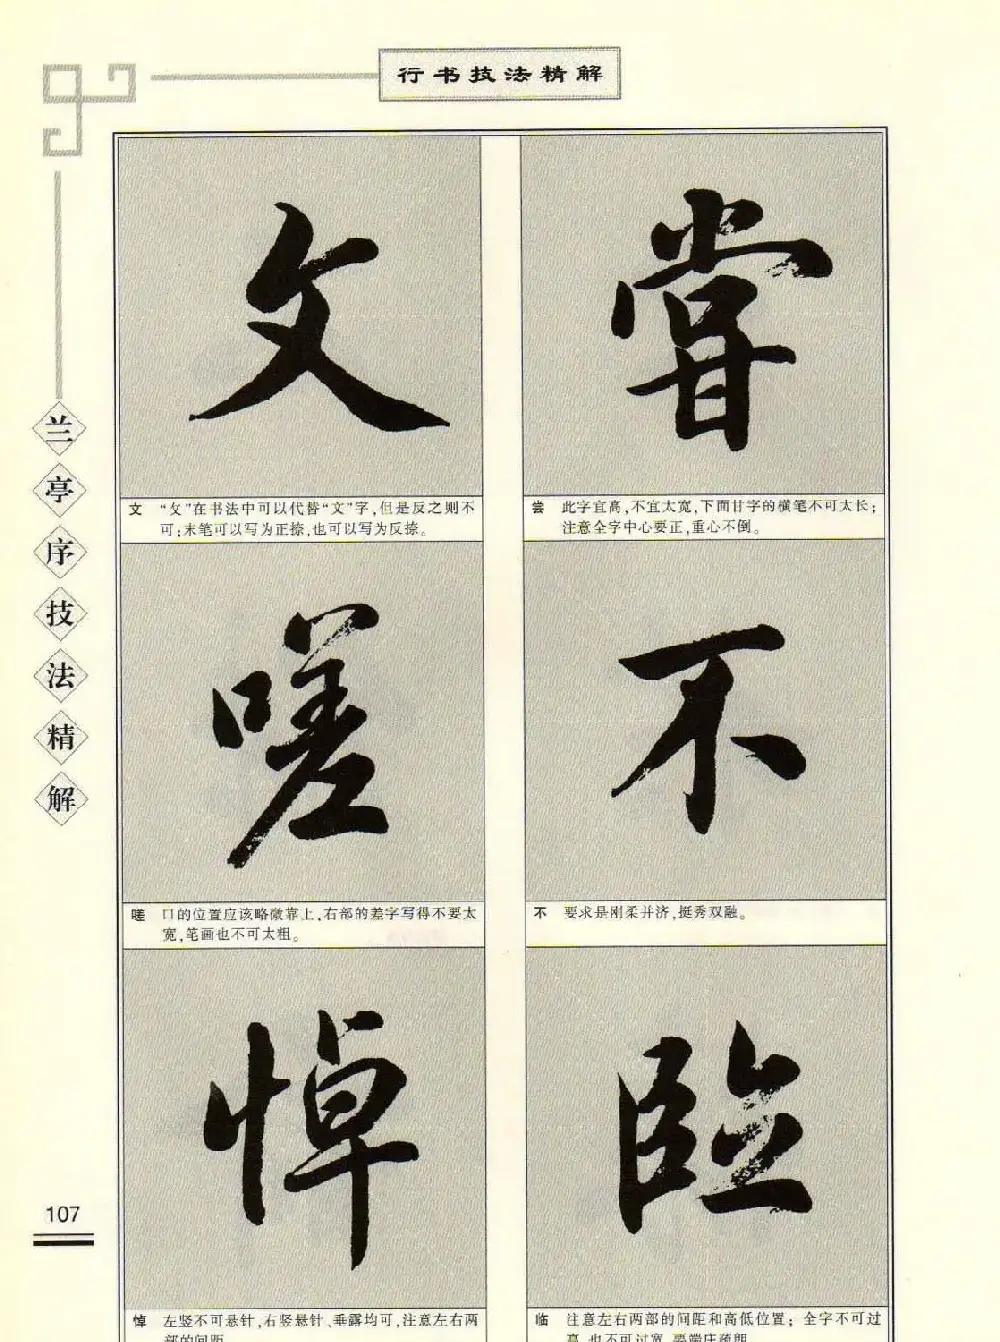 行书技法精解
兰亭序技法精解
尝
尝 此字宜高,不宜太宽,下面甘字的横笔不可太长;
注意全字中心要正,重心不倒。
不
不 要求是刚柔并济,挺秀双融。
临
临 注意左右两部的间距和高低位置;全字不可过
高,也不可过宽,要端庄疏朗
文
文 “攵”在书法中可以代替“文”字,但是反之则不
可;末笔可以写为正捺,也可以写为反捺。
嗟
嗟 口的位置应该略微靠上,右部的差字写得不要太
宽,笔画也不可太粗。
悼
悼 左竖不可悬针,右竖悬针、垂露均可,注意左右两
部的间距
107